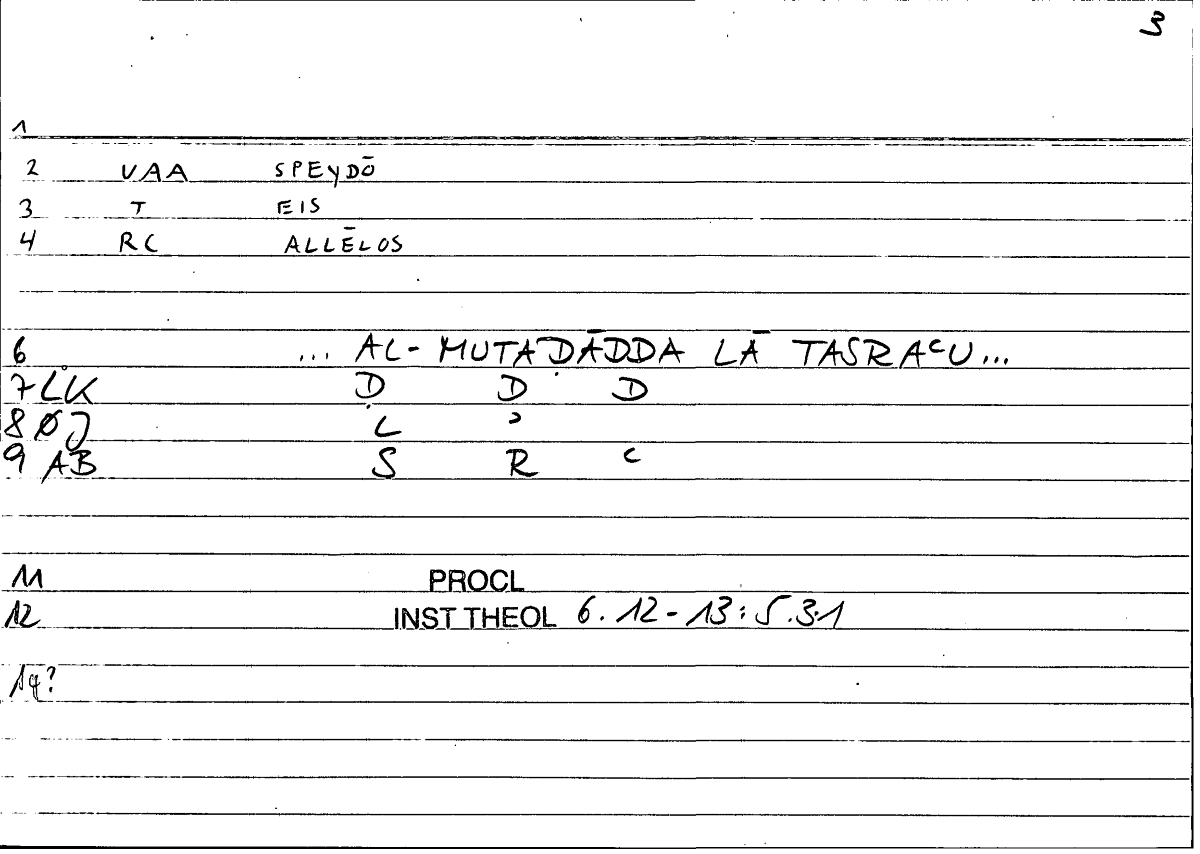 3
1
2 VAA SPEYDŌ
3 T EIS
4 RC ALLĒLOS
6 ... AL-MUTAḌĀDDA LĀ TASRAᶜU...
7 LK Ḍ D D
8 ØJ L ᵓ
9 AB S R ᶜ
11 PROCL
12 INST THEOL 6.12-13:5.3.1
14?